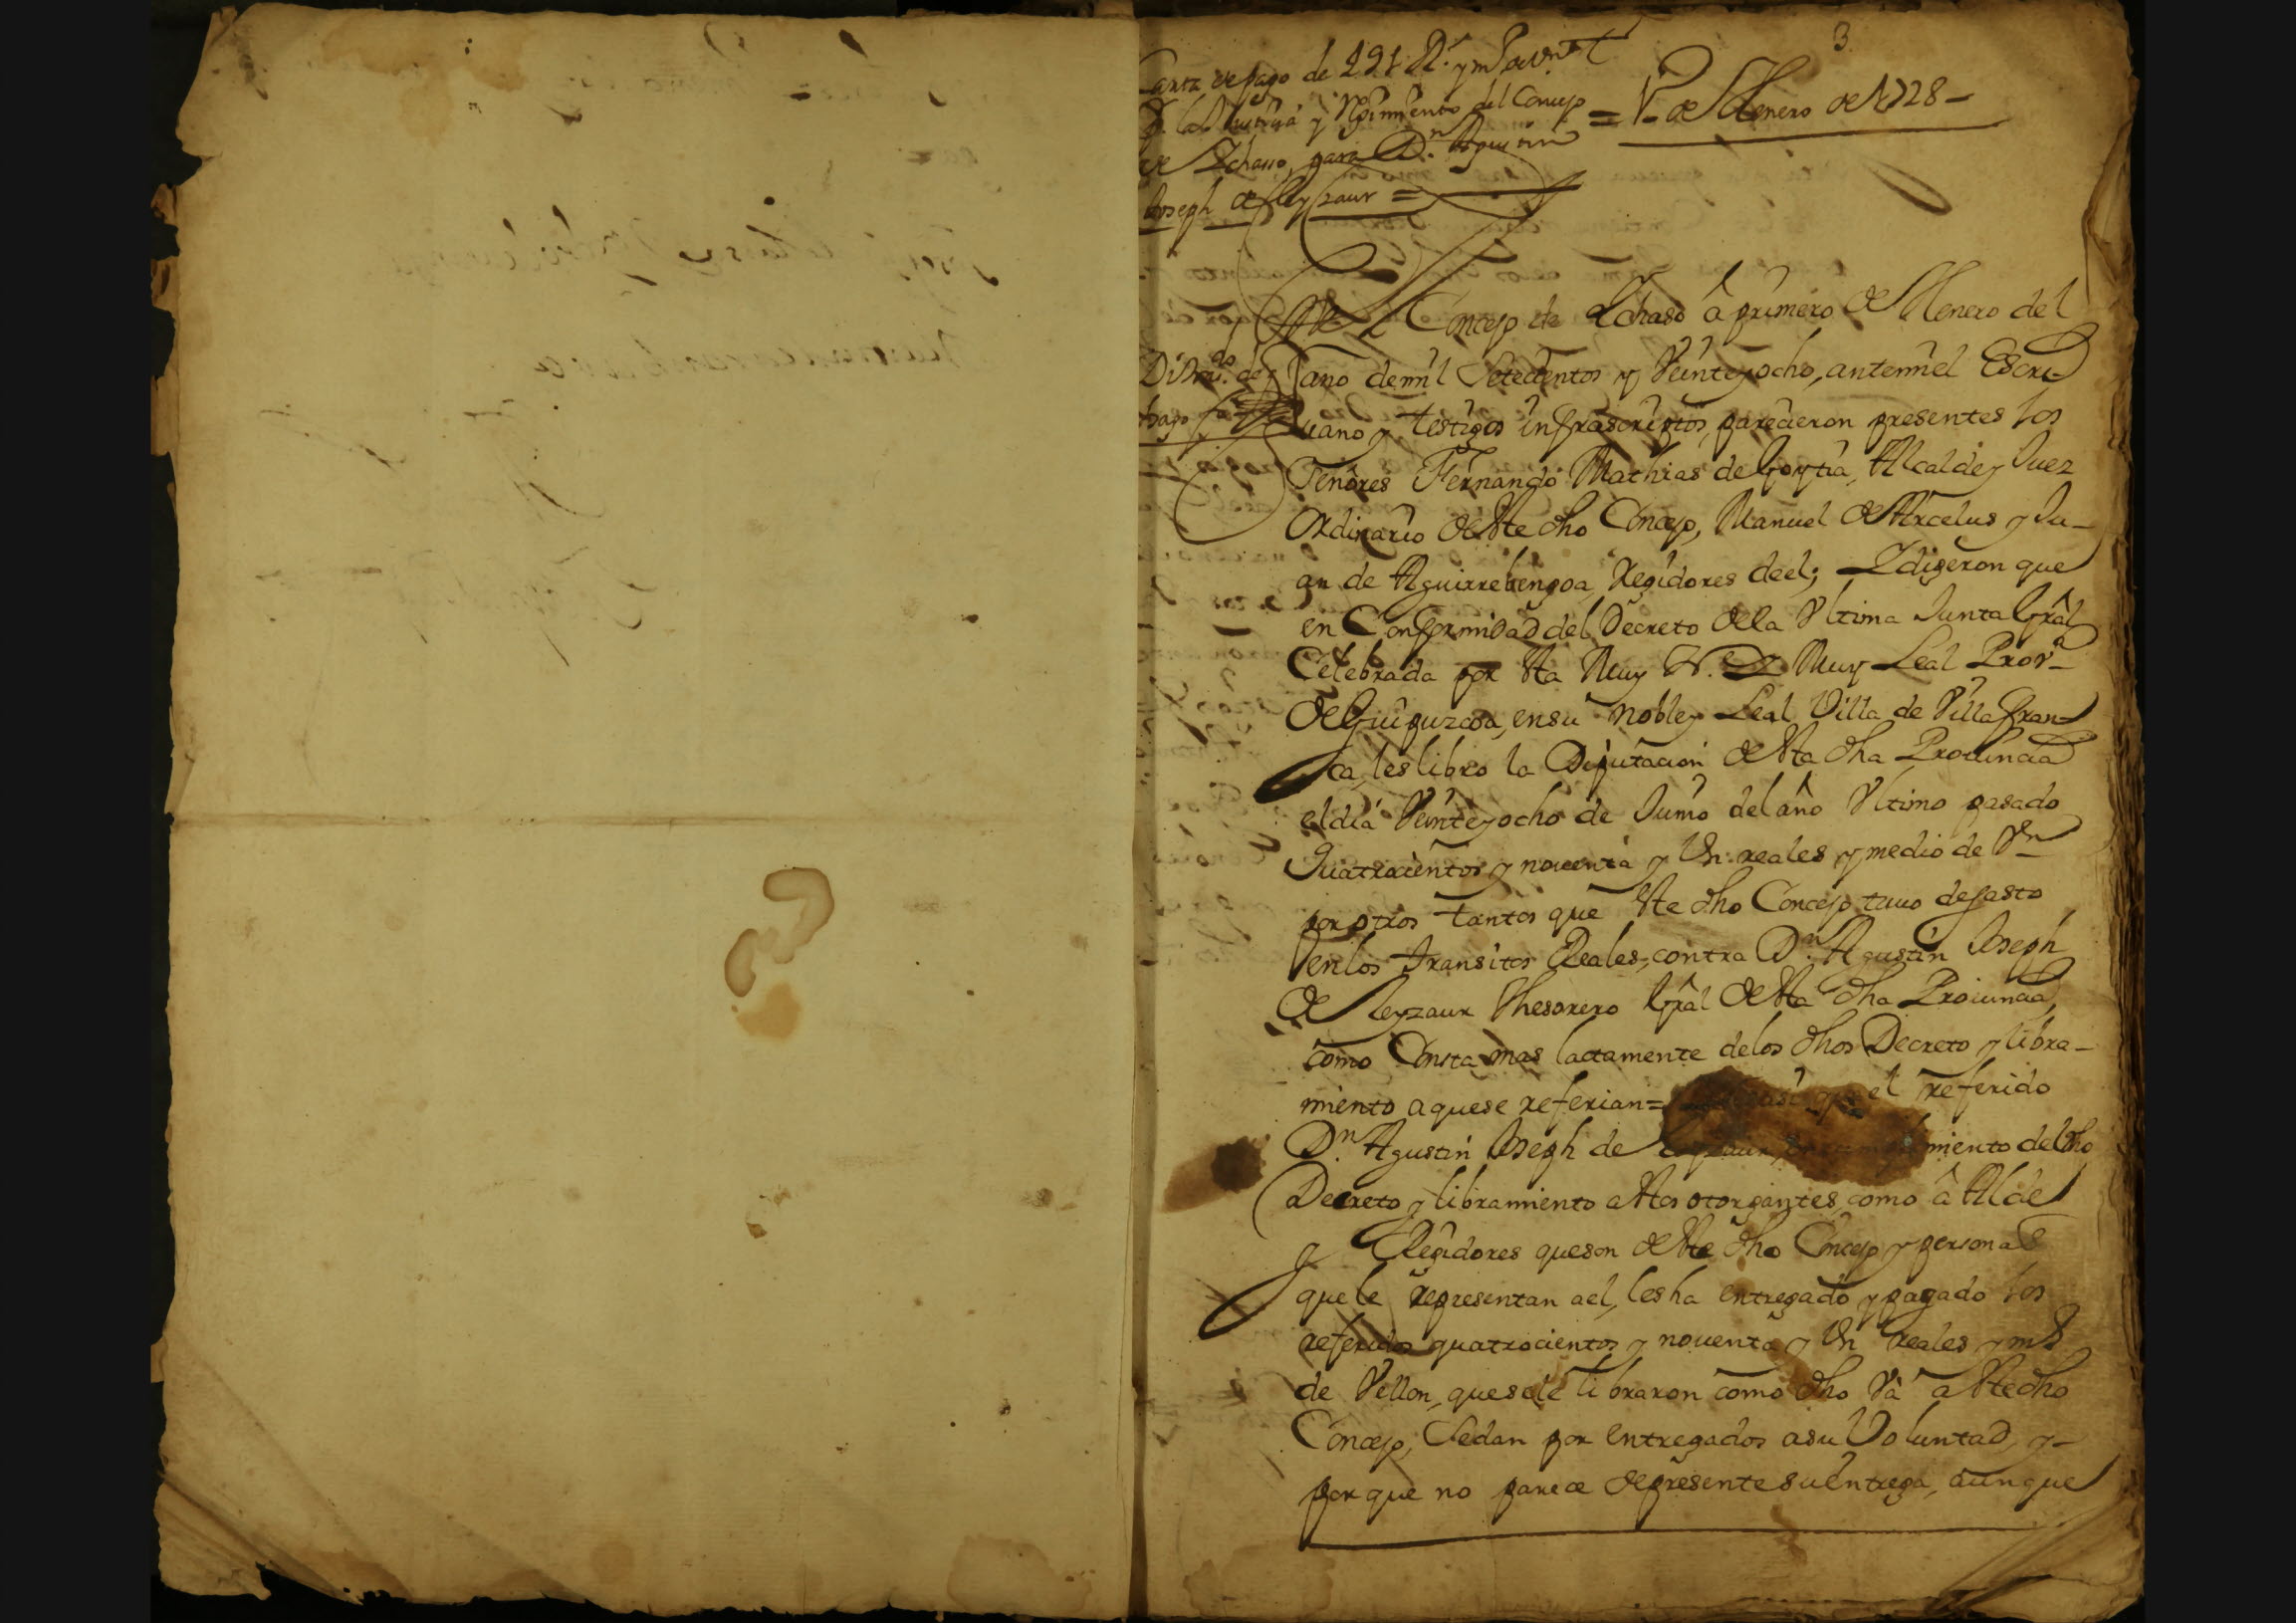 3
Carta de pago de 491 Rs. y mo de Vn.
Justicia y Regimiento del Concejo
de Ychasso, para Dn. Agustin
Joseph de Leyzaur =
= 1o de Henero de 1728 –
En el Concejo de Ychaso â primero de Henero del
año de mil Setecientos y Veinte y ocho, ante mi el Escri-
uano y testigos infrascriptos, parecieron presentes los
Señores Fernando Mathias de Goytia, Alcalde y Juez
Ordinario de Ste dho Concejo, Manuel de Arcelus y Ju-
an de Aguirrebengoa, Regidores de el; Y digeron que
en Conformidad del Decreto de la Vltima Junta Gral
Celebrada por Sta Muy N. y Muy Leal Prova
de Guipuzcoa, en su noble y Leal Villa de Villafran-
ca, les libro la Diputacion de Sta dha Prouincia
el dia Veinte y ocho de Junio del año Vltimo pasado
Quatrocientos y nouenta y Vn reales y medio de Vn
por otros tantos que Ste dho Concejo tuuo de gasto
en los transitos Reales, contra Dn. Agustin Joseph
de Leyzaur Thesorero Gral de Sta dha Prouincia,
como Consta mas lactamente de los dhos Decreto y libra-
miento a que se referian = el referido
Dn. Agustin Joseph de Leyzaur miento del dho
Decreto y libramiento a Stos otorgantes, como â Alcde
y Regidores que son de Ste dho Concejo y personas
que le representan a el, les ha entregado y pagado los
referidos quatrocientos y nouenta y Vn reales y mo
de Vellon, que se le libraron como dho Va a Ste dho
Concejo, Se dan por entregados a su Voluntad, y –
por que no parece de presente su entrega, aunque